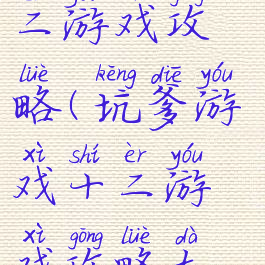 二游戏攻
lüè kēng diē yóu
略(坑爹游
xì shí èr yóu
戏十二游
xì gōng lüè dà
戏攻略大